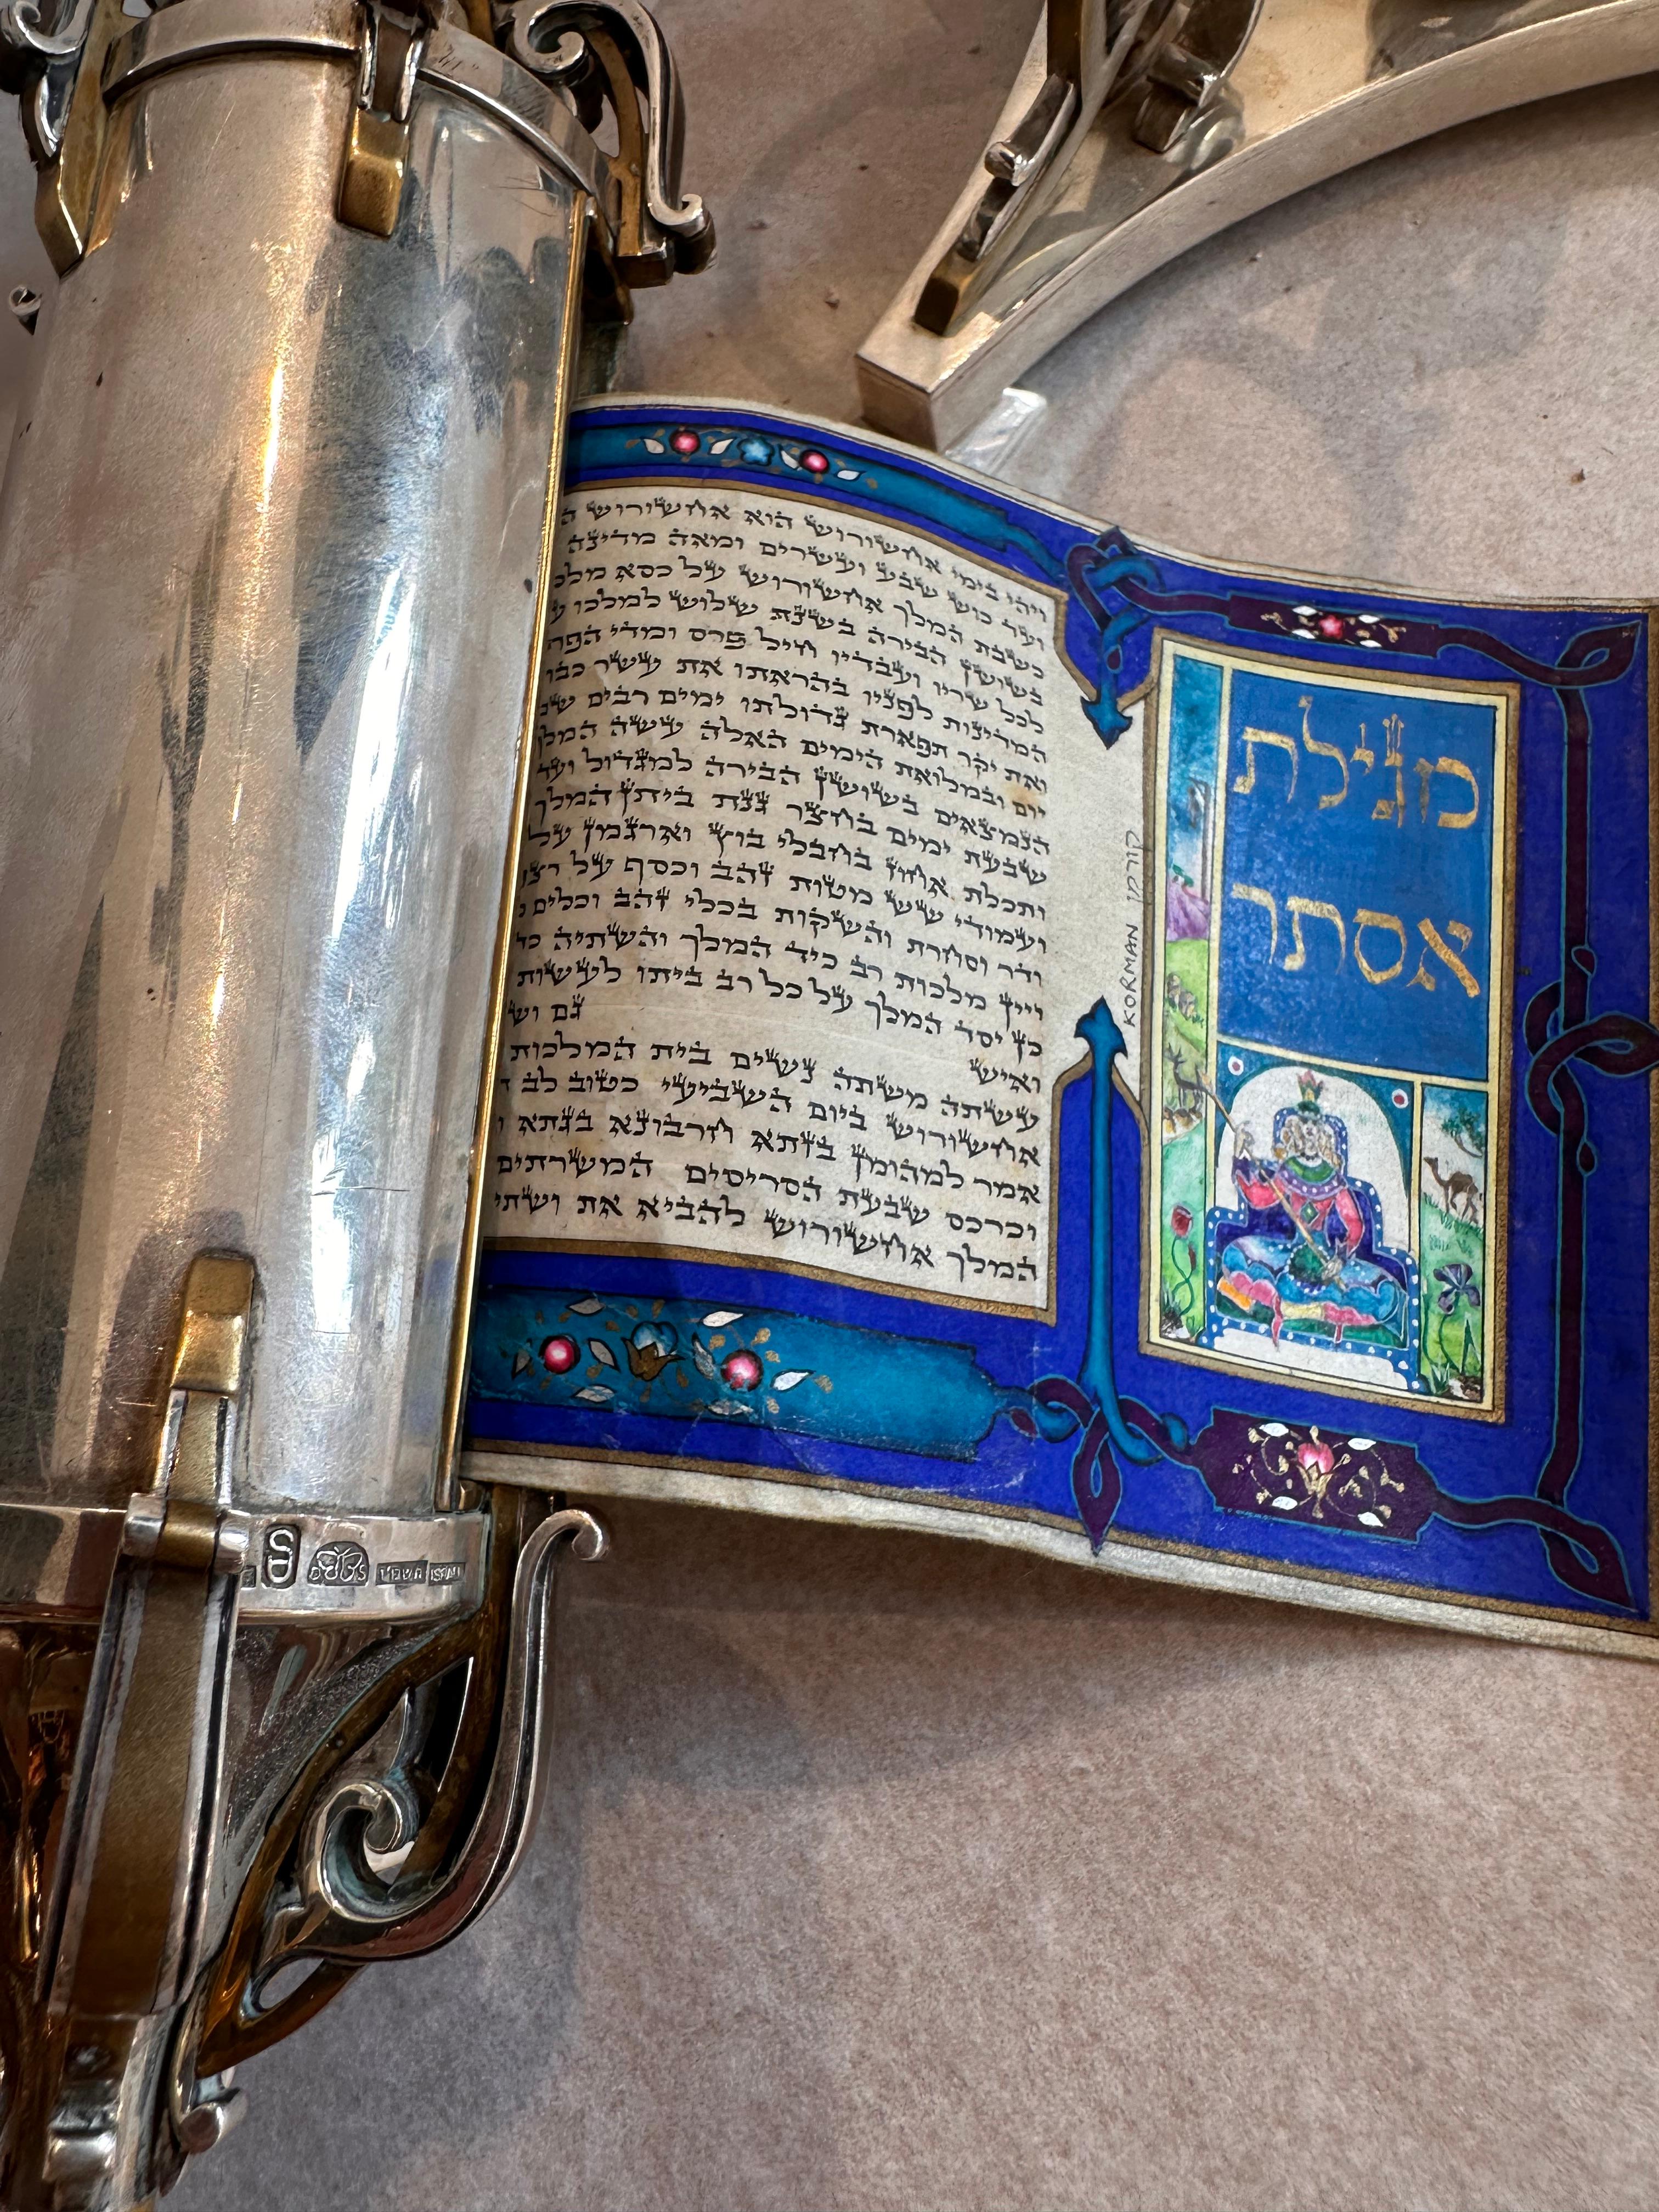 מגילת
אסתר
KORMAN קורמן
ויהי בימי אחשורוש הוא אחשורוש
ועד כוש שבע ועשרים ומאה מדינה
כשבת המלך אחשורוש על כסא
בשושן הבירה בשנת שלוש למלכו
לכל שריו ועבדיו חיל פרס ומדי
המדינות לפניו בהראתו את עשר
ואת יקר תפארת גדולתו ימים רבים
יום ובמלואת הימים האלה עשה המלך
הנמצאים בשושן הבירה למגדול ועד
שבעת ימים בחצר גנת ביתן המלך
ותכלת אחוז בחבלי בוץ וארגמן על
ועמודי שש מטות זהב וכסף על
ודר וסחרת והשקות בכלי זהב וכלים
ויין מלכות רב כיד המלך והשתיה
כן יסד המלך על כל רב ביתו לעשות
ואיש גם
עשתה משתה נשים בית המלכות
אחשורוש ביום השביעי כטוב לב
אמר למהומן בזתא חרבונא בגתא
וכרכס שבעת הסריסים המשרתים
המלך אחשורוש להביא את ושתי
ISRAEL